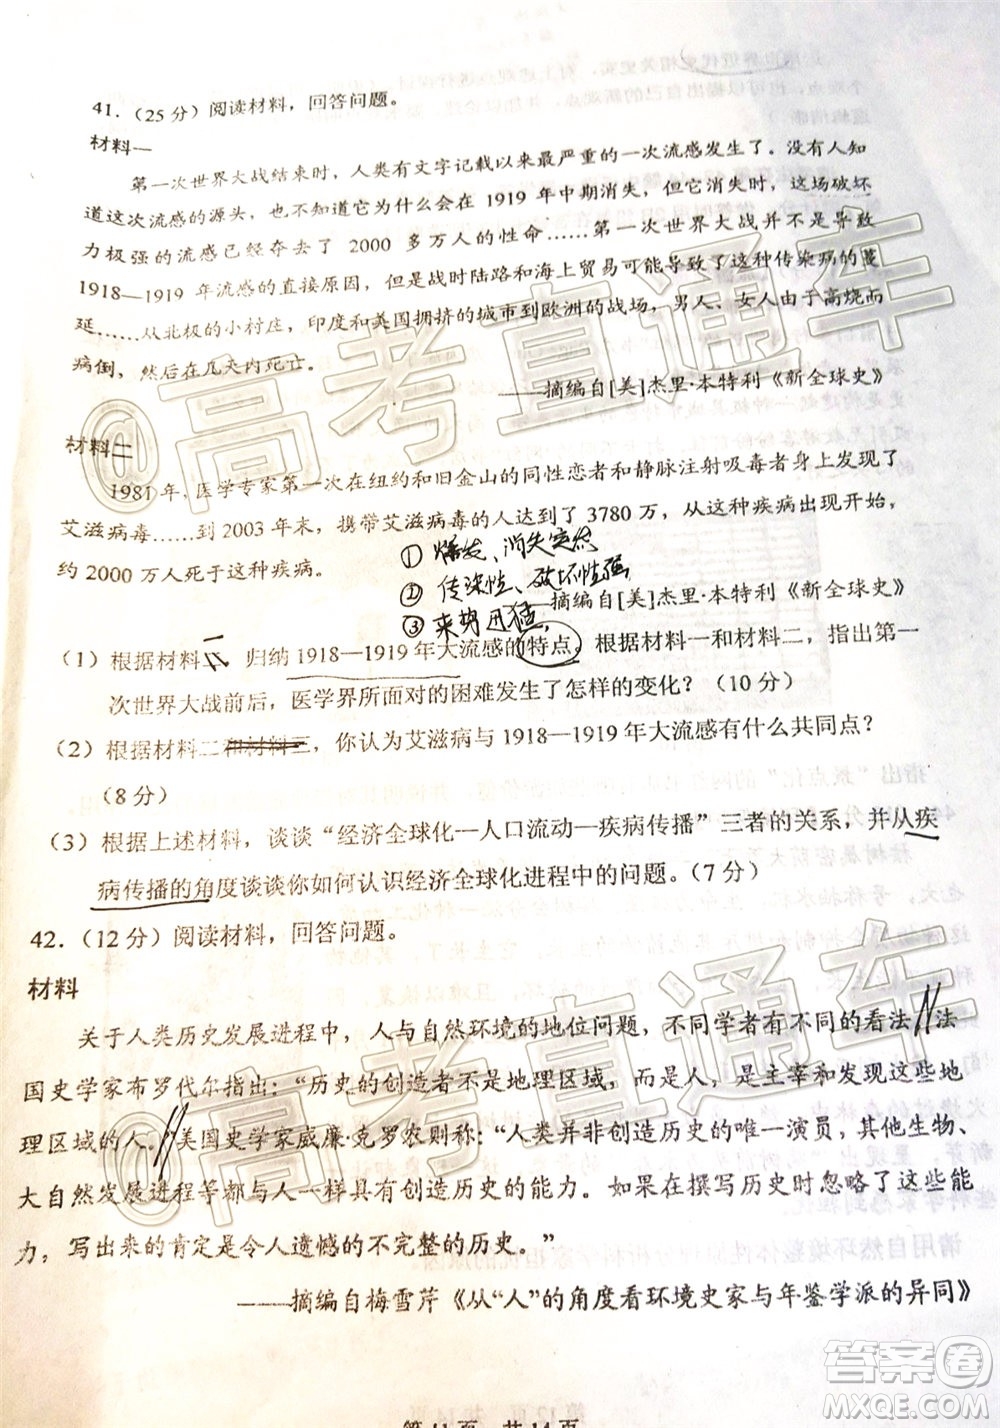 41.（25 分）阅读材料，回答问题。
材料一
第一次世界大战结束时，人类有文字记载以来最严重的一次流感发生了。没有人知
道这次流感的源头，也不知道它为什么会在 1919 年中期消失，但它消失时，这场破坏
力极强的流感已经夺去了 2000 多万人的性命……第一次世界大战并不是导致
1918—1919 年流感的直接原因，但是战时陆路和海上贸易可能导致了这种传染病的蔓
延……从北极的小村庄，印度和美国拥挤的城市到欧洲的战场，男人、女人由于高烧而
病倒，然后在几天内死亡。
——摘编自[美]杰里·本特利《新全球史》
材料二
1981 年，医学专家第一次在纽约和旧金山的同性恋者和静脉注射吸毒者身上发现了
艾滋病毒……到 2003 年末，携带艾滋病毒的人达到了 3780 万，从这种疾病出现以来大
约 2000 万人死于这种疾病。
① 爆发、消失突然
② 传染性、破坏性强
③ 来势凶猛，
摘编自[美]杰里·本特利《新全球史》
（1）根据材料一，归纳 1918—1919 年大流感的特点。根据材料一和材料二，指出第一
次世界大战前后，医学界所面对的困难发生了怎样的变化？（10 分）
（2）根据材料二和材料三，你认为艾滋病与 1918—1919 年大流感有什么共同点？
（8 分）
（3）根据上述材料，谈谈“经济全球化—人口流动—疾病传播”三者的关系，并从疾
病传播的角度谈谈你如何认识经济全球化进程中的问题。（7 分）
42.（12 分）阅读材料，回答问题。
材料
关于人类历史发展进程中，人与自然环境的地位问题，不同学者有不同的看法 法
国史学家布罗代尔指出：“历史的创造者不是地理区域，而是人，是主宰和发现这些地
理区域的人。”美国史学家威廉·克罗农则称：“人类并非创造历史的唯一演员，其他生物、
大自然发展进程等都与人一样具有创造历史的能力。如果在撰写历史时忽略了这些能
力，写出来的肯定是令人遗憾的不完整的历史。”
——摘编自梅雪芹《从“人”的角度看环境史家与年鉴学派的异同》
第 11 页 共 14 页
@高考直通车
@高考直通车
答案圈
MXQE.COM